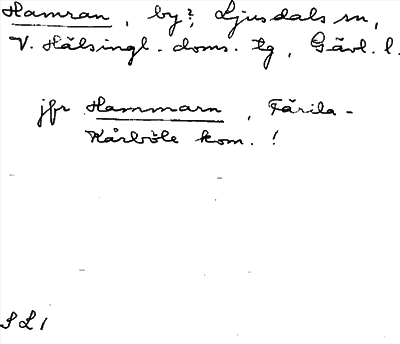 Hamran, by?, Ljusdals sn,
V. Hälsingl. doms. tg, Gävl. l.
jfr Hammarn, Färila-
Kårböle kom.!
SL1